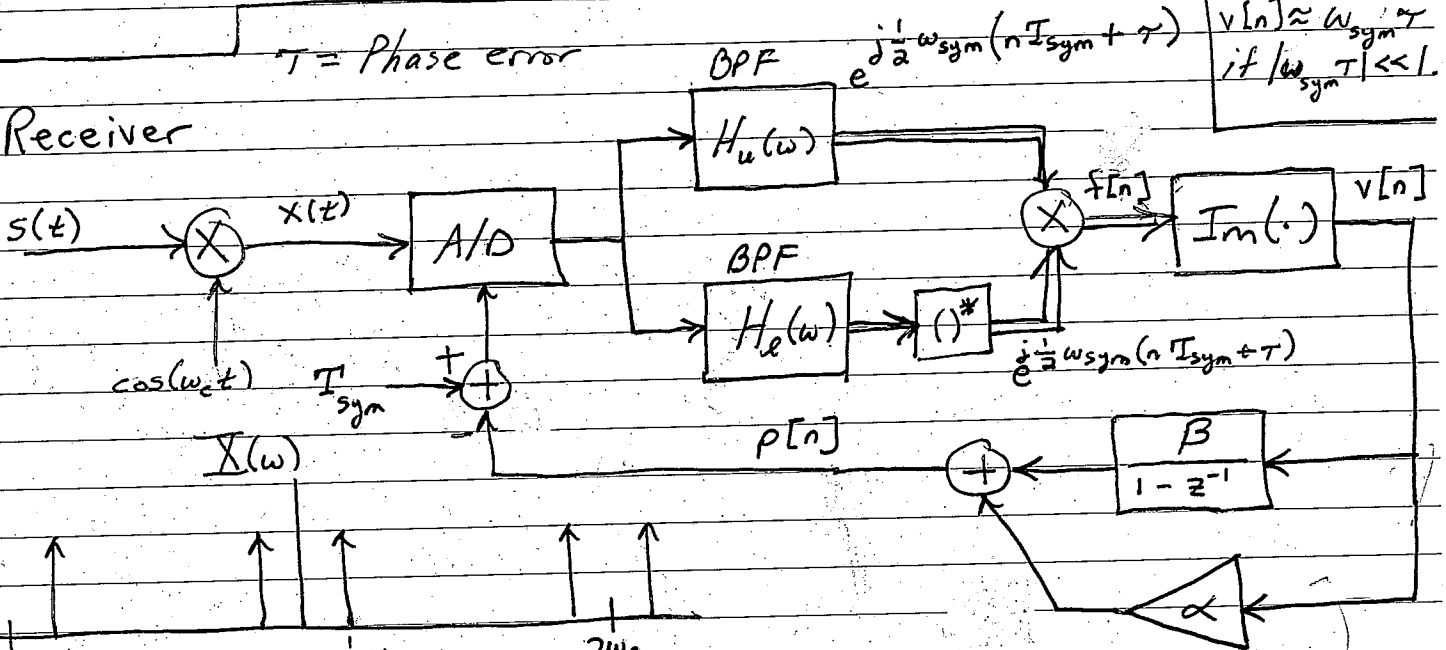 τ = Phase error
BPF
e^{j½ω_sym(nT_sym + τ)}
v[n] ≈ ω_sym τ
if |ω_sym τ| << 1.
Receiver
H_u(ω)
s(t)
X
x(t)
A/D
X
f[n]
Im(·)
v[n]
BPF
H_ℓ(ω)
()*
e^{j½ω_sym(nT_sym + τ)}
cos(ω_c t)
T_sym
+
+
-
X(ω)
p[n]
+
β
1 - z^{-1}
α